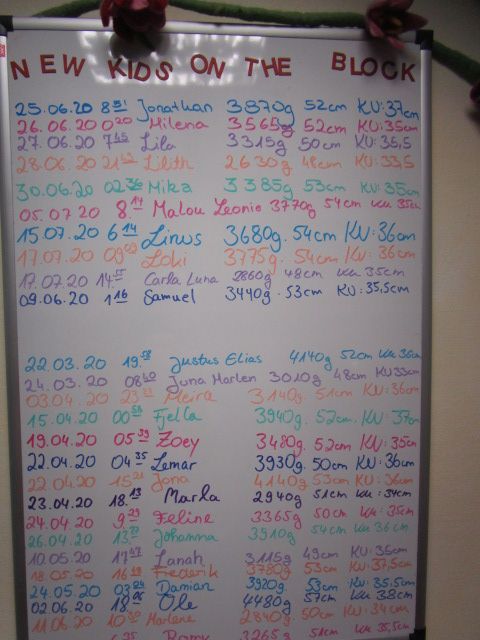 NEW KIDS ON THE BLOCK
25.06.20 8 51 Jonathan 3870g 52cm KU: 37cm
26.06.20 0 20 Milena 3565g 52cm KU: 35cm
27.06.20 7 45 Lila 3315g 50cm KU: 35,5
28.06.20 21 Lilith 2630g 48cm KU: 33,5
30.06.20 02 36 Mika 3385g 53cm KU: 35cm
05.07.20 8 14 Malou Leonie 3770g 54cm KU 35cm
15.07.20 6 14 Linus 3680g. 54cm KU: 36cm
17.07.20 09 Loki 3775g. 54cm KU: 36cm
17.07.20 14 Carla Luna 2860g 48cm KU 35cm
09.06.20 1 16 Samuel 3440g. 53cm KU: 35,5cm
22.03.20 19 58 Justus Elias 4140g 52cm KU 36cm
24.03.20 08 40 Juna Marlen 3010g 48cm KU 33cm
03.04.20 23 Meira 3140g. 51cm KU: 36cm
15.04.20 00 54 Fjella 3940g. 52cm. KU: 37cm
19.04.20 05 39 Zoey 3480g. 52cm KU: 35cm
22.04.20 04 35 Lemar 3930g. 50cm KU: 36cm
22.04.20 15 21 Jona 4140g 53cm KU: 36cm
23.04.20 18 13 Marla 2940g 51cm KU: 34cm
24.04.20 9 29 Feline 3365g 50cm KU: 35cm
26.04.20 13 Johanna 3910g 54cm KU 36cm
10.05.20 17 47 Lanah 3115g 49cm KU: 36cm
18.05.20 16 Frederik 3780g 53cm KU: 37,5cm
24.05.20 03 Damian 3920g 53cm KU: 35,5cm
02.06.20 18 06 Ole 4480g 57cm KU 38cm
11.06.20 10 Marlene 2840g 50cm KU: 34cm
Romy 3265g 51cm